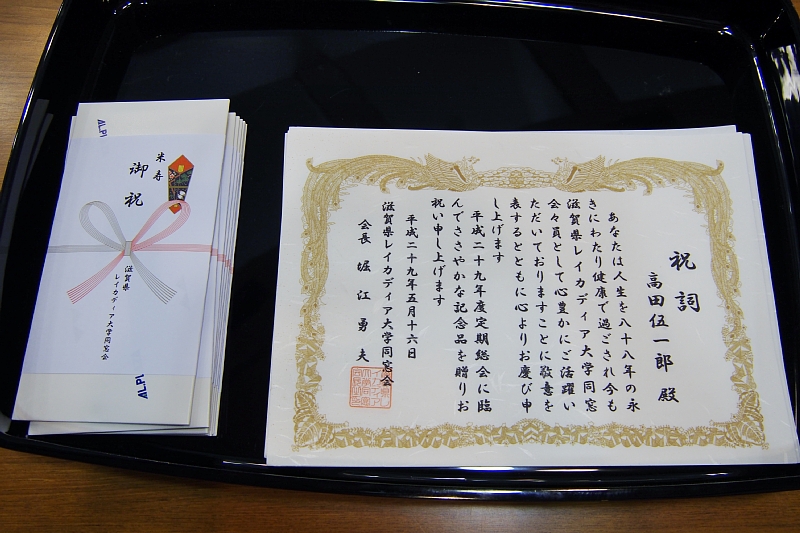 祝詞
高田伍一郎 殿
あなたは人生を八十八年の永
きにわたり健康で過ごされ今も
滋賀県レイカディア大学同窓
会々員として心豊かにご活躍い
ただいておりますことに敬意を
表するとともに心よりお慶び申
し上げます
平成二十九年度定期総会に臨
んでささやかな記念品を贈りお
祝い申し上げます
平成二十九年五月十六日
滋賀県レイカディア大学同窓会
会長 堀江勇夫
米寿
御祝
滋賀県
レイカディア大学同窓会
ALPL
ALPL